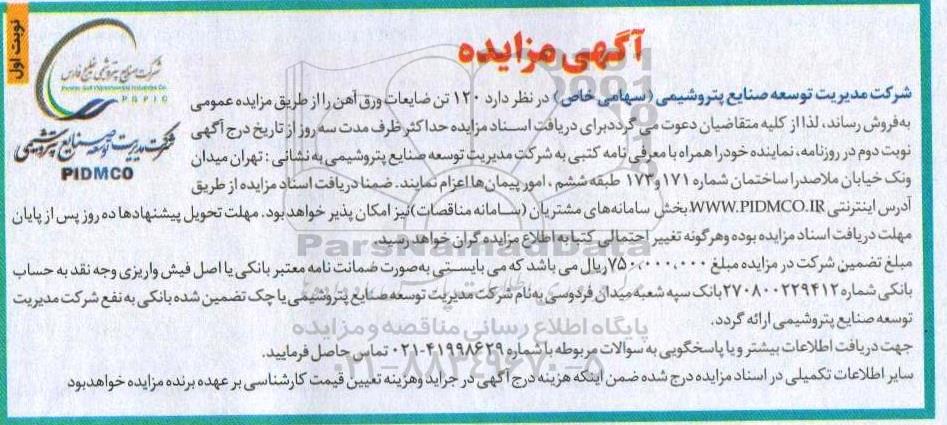 نوبت اول
شرکت صنایع پتروشیمی خلیج فارس
Persian Gulf Petrochemical Industries Co.
PGPIC
شرکت مدیریت توسعه صنایع پتروشیمی
PIDMCO
آگهی مزایده
شرکت مدیریت توسعه صنایع پتروشیمی (سهامی خاص) در نظر دارد ۱۲۰ تن ضایعات ورق آهن را از طریق مزایده عمومی
به‌فروش رساند، لذا از کلیه متقاضیان دعوت می گردد برای دریافت اسناد مزایده حداکثر ظرف مدت سه روز از تاریخ درج آگهی
نوبت دوم در روزنامه، نماینده خود را همراه با معرفی نامه کتبی به شرکت مدیریت توسعه صنایع پتروشیمی به نشانی : تهران میدان
ونک خیابان ملاصدرا ساختمان شماره ۱۷۱ و ۱۷۳ طبقه ششم ، امور پیمان‌ها اعزام نمایند. ضمنا دریافت اسناد مزایده از طریق
آدرس اینترنتی WWW.PIDMCO.IR بخش سامانه‌های مشتریان (سامانه مناقصات) نیز امکان پذیر خواهد بود. مهلت تحویل پیشنهادها ده روز پس از پایان
مهلت دریافت اسناد مزایده بوده و هرگونه تغییر احتمالی کتبا به اطلاع مزایده گران خواهد رسید.
مبلغ تضمین شرکت در مزایده مبلغ ۷۵۰،۰۰۰،۰۰۰ ریال می باشد که می بایستی به‌صورت ضمانت نامه معتبر بانکی یا اصل فیش واریزی وجه نقد به حساب
بانکی شماره ۲۷۰۸۰۰۲۲۹۴۱۲ بانک سپه شعبه میدان فردوسی به‌نام شرکت مدیریت توسعه صنایع پتروشیمی یا چک تضمین شده بانکی به نفع شرکت مدیریت
توسعه صنایع پتروشیمی ارائه گردد.
جهت دریافت اطلاعات بیشتر و یا پاسخگویی به سوالات مربوطه با شماره ۴۱۹۹۸۶۲۹-۰۲۱ تماس حاصل فرمایید.
سایر اطلاعات تکمیلی در اسناد مزایده درج شده ضمن اینکه هزینه درج آگهی در جراید و هزینه تعیین قیمت کارشناسی بر عهده برنده مزایده خواهد بود
ParsNamadData
پایگاه اطلاع رسانی مناقصه و مزایده
۰۲۱-۸۸۳۴۹۶۷۰-۵